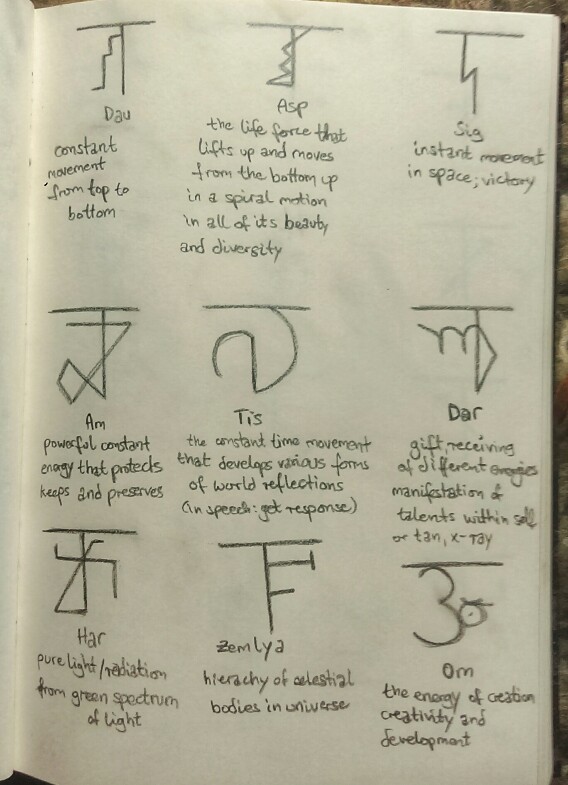 Dau
constant
movement
from top to
bottom
Asp
the life force that
lifts up and moves
from the bottom up
in a spiral motion
in all of its beauty
and diversity
Sig
instant movement
in space; victory
Am
powerful constant
energy that protects
keeps and preserves
Tis
the constant time movement
that develops various forms
of world reflections
(in speech: get response)
Dar
gift, receiving
of different energies
manifestation of
talents within self
or tan, x-ray
Har
pure light/radiation
from green spectrum
of light
Zemlya
hierachy of celestial
bodies in universe
Om
the energy of creation
creativity and
development